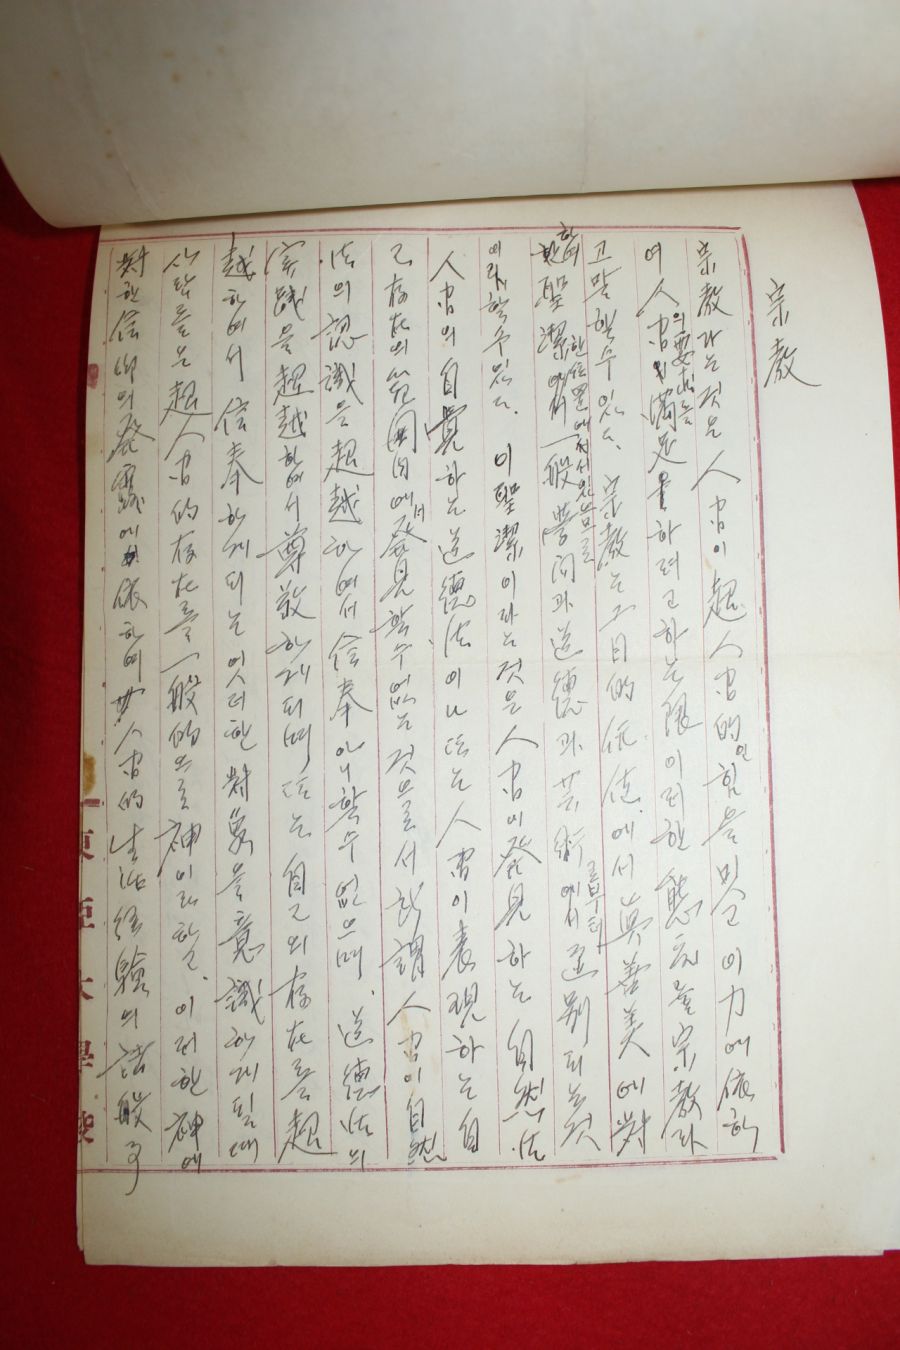 宗教
宗教라는것은 人間이 超人間的인 힘을 믿고 이力에 依하
여 人間의 要求를 滿足하려고 하는 限 이러한 態度를 宗教라
고 말할수 있다. 宗教는 그目的 価値에서 眞善美에 對
하여 聖潔한位置에 서서 있음으로 一般 學問과 道德과 芸術에서 区別되는것
이라 할수 있다. 이 聖潔이라는 것은 人間이 発見하는 自然法
人間의 自覺하는 道德法이나 또는 人間이 表現하는 自
己存在의 範圍內에서 發見할수 없는 것으로서 所謂 人間이 自然
法의 認識을 超越하여서 信奉 아니할수 없으며, 道德法의
実踐을 超越하여서 尊敬하게되며 또는 自己의 存在를 超
越하여서 信奉하게되는 어떠한 對象을 意識하게 될때
사람들은 超人間的 存在를 一般的으로 神이라 함. 이러한 神에
對한 信仰의 發露에 依하여 人間的 生活経驗의 諸般
東亞大學校